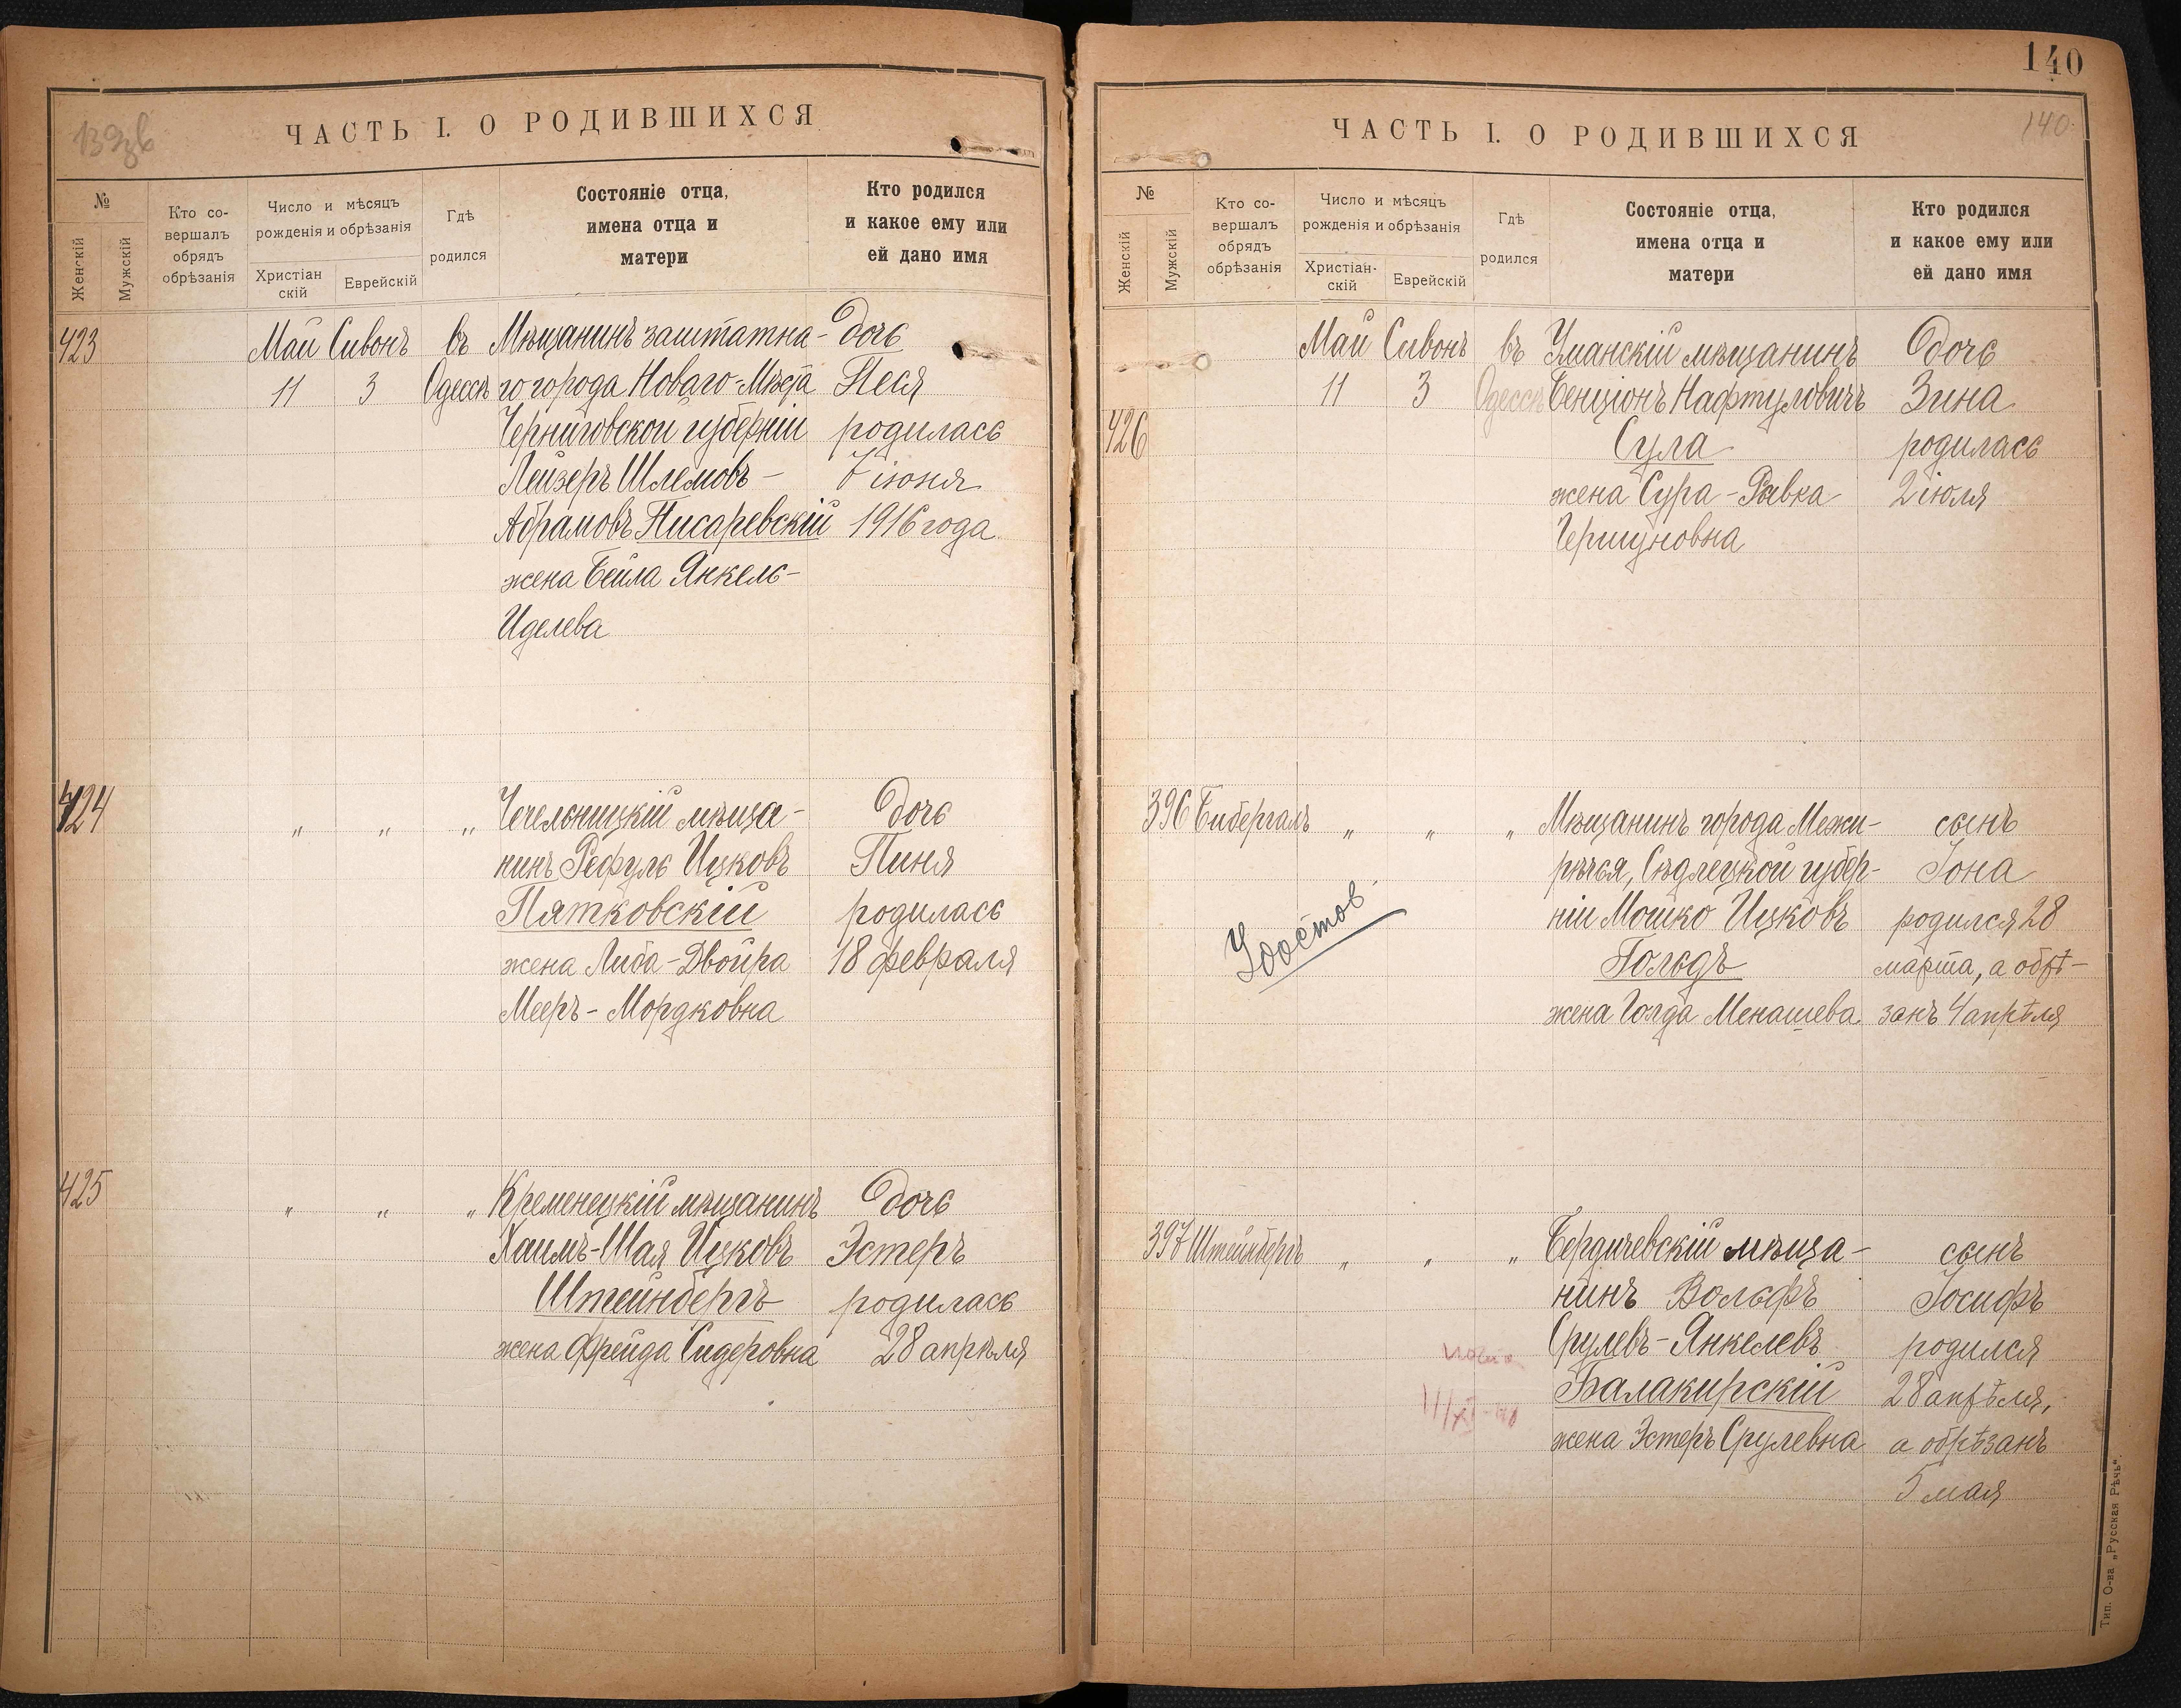 139об
ЧАСТЬ I. О РОДИВШИХСЯ
№
Женскій
Мужскій
Кто со-
вершалъ
обрядъ
обрѣзанія
Число и мѣсяцъ
рожденія и обрѣзанія
Христіан
скій
Еврейскій
Гдѣ
родился
Состояніе отца,
имена отца и
матери
Кто родился
и какое ему или
ей дано имя
423 Май Сивонъ въ Мѣщанинъ заштатна- дочь
11 3 Одессѣ го города Новаго-Мѣста Песя
Черниговской губерніи родилась
Лейзеръ Шлемовъ- 7 іюня
Абрамовъ Писаревскій 1916 года
жена Бейла Янкель-
Иделева
424 „ „ „ Чечельницкій мѣща- дочь
нинъ Рефуль Ицковъ Пиня
Пятковскій родилась
жена Либа-Двойра 18 февраля
Мееръ-Мордковна
425 „ „ „ Кременецкій мѣщанинъ дочь
Хаимъ-Шая Ицковъ Эстеръ
Штейнбергъ родилась
жена Фрейда Сидеровна 28 апрѣля
140
140
ЧАСТЬ I. О РОДИВШИХСЯ
№
Женскій
Мужскій
Кто со-
вершалъ
обрядъ
обрѣзанія
Число и мѣсяцъ
рожденія и обрѣзанія
Христіан-
скій
Еврейскій
Гдѣ
родился
Состояніе отца,
имена отца и
матери
Кто родился
и какое ему или
ей дано имя
Май Сивонъ въ Уманскій мѣщанинъ дочь
11 3 Одессѣ Бенціонъ Нафтуловичъ Зина
426 Сула родилась
жена Сура-Рывка 2 іюля
Гершуновна
396 Бибергалъ „ „ „ Мѣщанинъ города Межи- сынъ
рѣчья, Сѣдлецкой губер- Іона
ніи Мошко Ицковъ родился 28
Гольдъ марта, а обрѣ-
жена Голда Менашева занъ 4 апрѣля
Удостов.
397 Штейнбергъ „ „ „ Бердичевскій мѣща- сынъ
нинъ Вольфъ Іосифъ
Срулевъ-Янкелевъ родился
Балакирскій 28 апрѣля,
жена Эстеръ Срулевна а обрѣзанъ
5 мая
Тип. О-ва „Русская Рѣчь“.